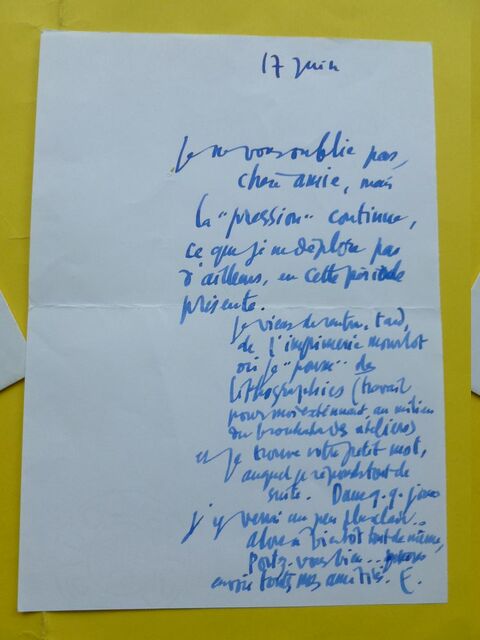 17 juin
Je ne vous oublie pas,
chère amie, mais
la "pression" continue,
ce que je ne déplore pas
d'ailleurs, en cette période
présente.
Je viens de rentrer, tard,
de l'imprimerie Mourlot
où je "pousse" des
lithographies (travail
pour moi exténuant, au milieu
du brouhaha des ateliers)
et je trouve votre petit mot,
auquel je réponds tout de
suite. Dans q.q. jours
j'y verrai un peu plus clair..
alors à bientôt tout de même,
Portez-vous bien..
envoie toutes mes amitiés. E.